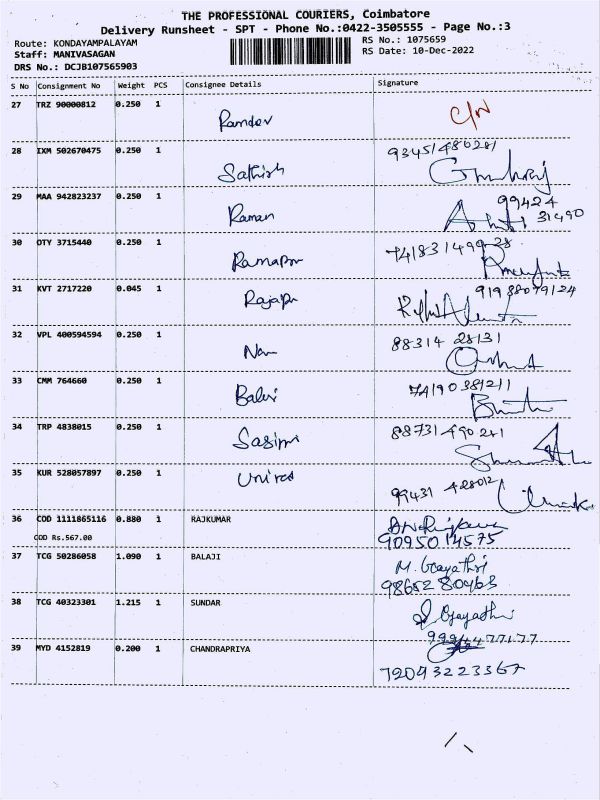 THE PROFESSIONAL COURIERS, Coimbatore
Delivery Runsheet - SPT - Phone No.:0422-3505555 - Page No.:3
Route: KONDAYAMPALAYAM
RS No.: 1075659
Staff: MANIVASAGAN
RS Date: 10-Dec-2022
DRS No.: DCJB107565903
S No Consignment No Weight PCS Consignee Details Signature
27 TRZ 90000812 0.250 1 Ramdev
28 IXM 502670475 0.250 1 Sathish
29 MAA 942823237 0.250 1 Raman 99424
31490
30 OTY 3715440 0.250 1
31 KVT 2717220 0.045 1 91988079124
32 VPL 400594594 0.250 1 88314 28131
33 CMM 764660 0.250 1 Balaji 74190381211
34 TRP 4838015 0.250 1 88731490241
35 KUR 528057897 0.250 1 United 99431 428012
36 COD 1111865116 0.880 1 RAJKUMAR
COD Rs.567.00 9095014575
37 TCG 50286058 1.090 1 BALAJI M. Gayathri
9865280463
38 TCG 40323301 1.215 1 SUNDAR
39 MYD 4152819 0.200 1 CHANDRAPRIYA
72043223367